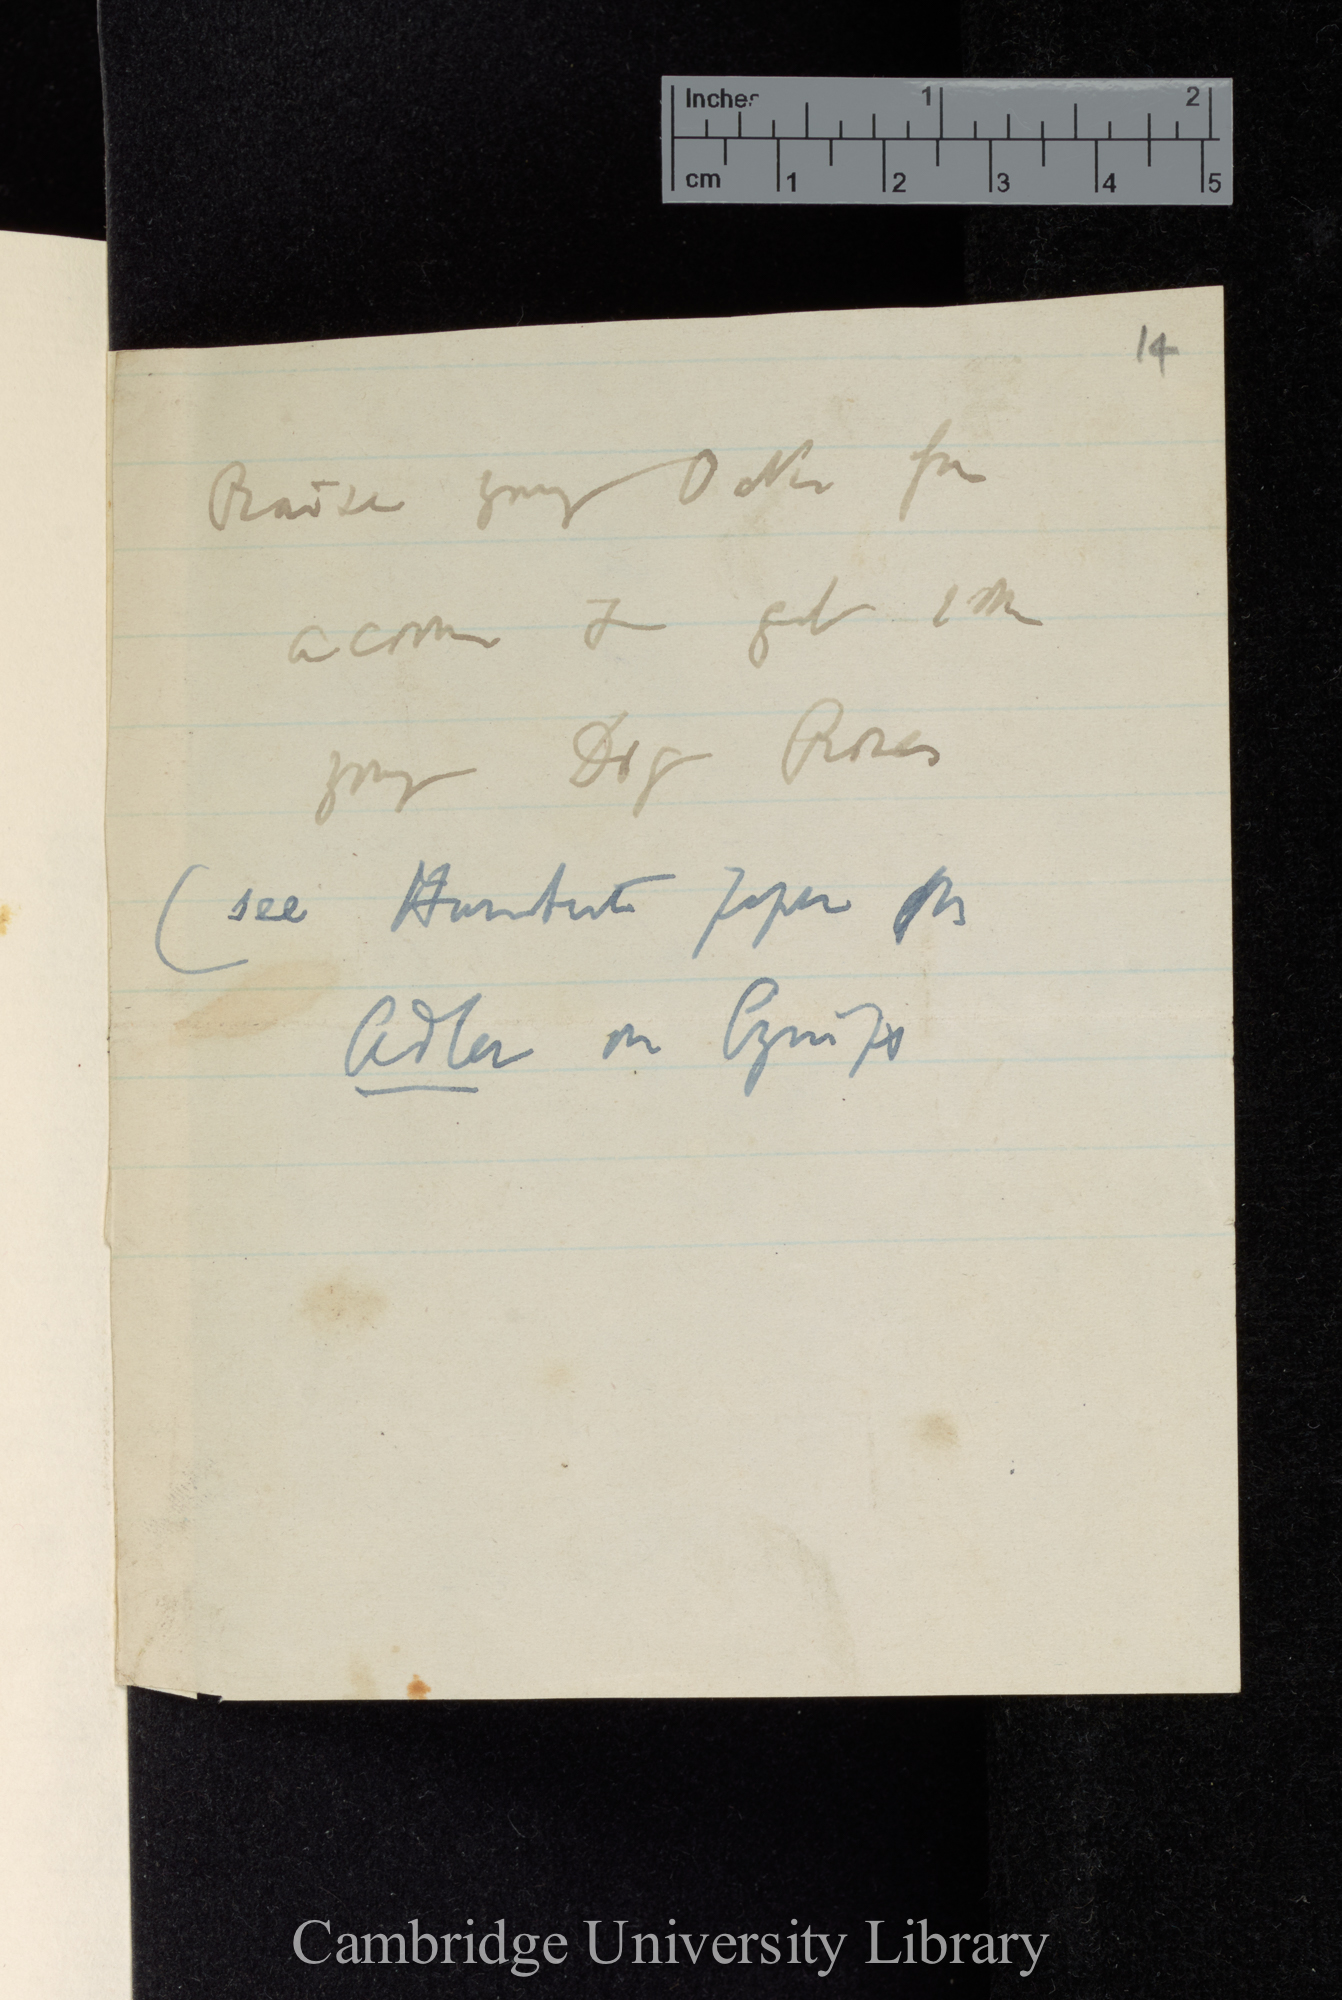 Inches 1 2
cm 1 2 3 4 5
14
Raise young Oaks from
acorns & get some
young Dog Roses
(see paper
Adler on Cynips
Cambridge University Library